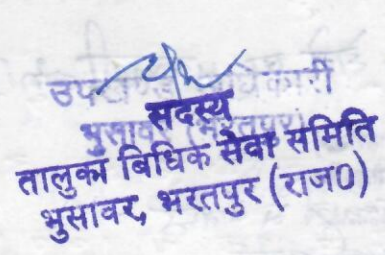 उपखण्ड अधिकारी
सदस्य
भुसावर (भरतपुर)
तालुका बिधिक सेवा समिति
भुसावर, भरतपुर (राज0)